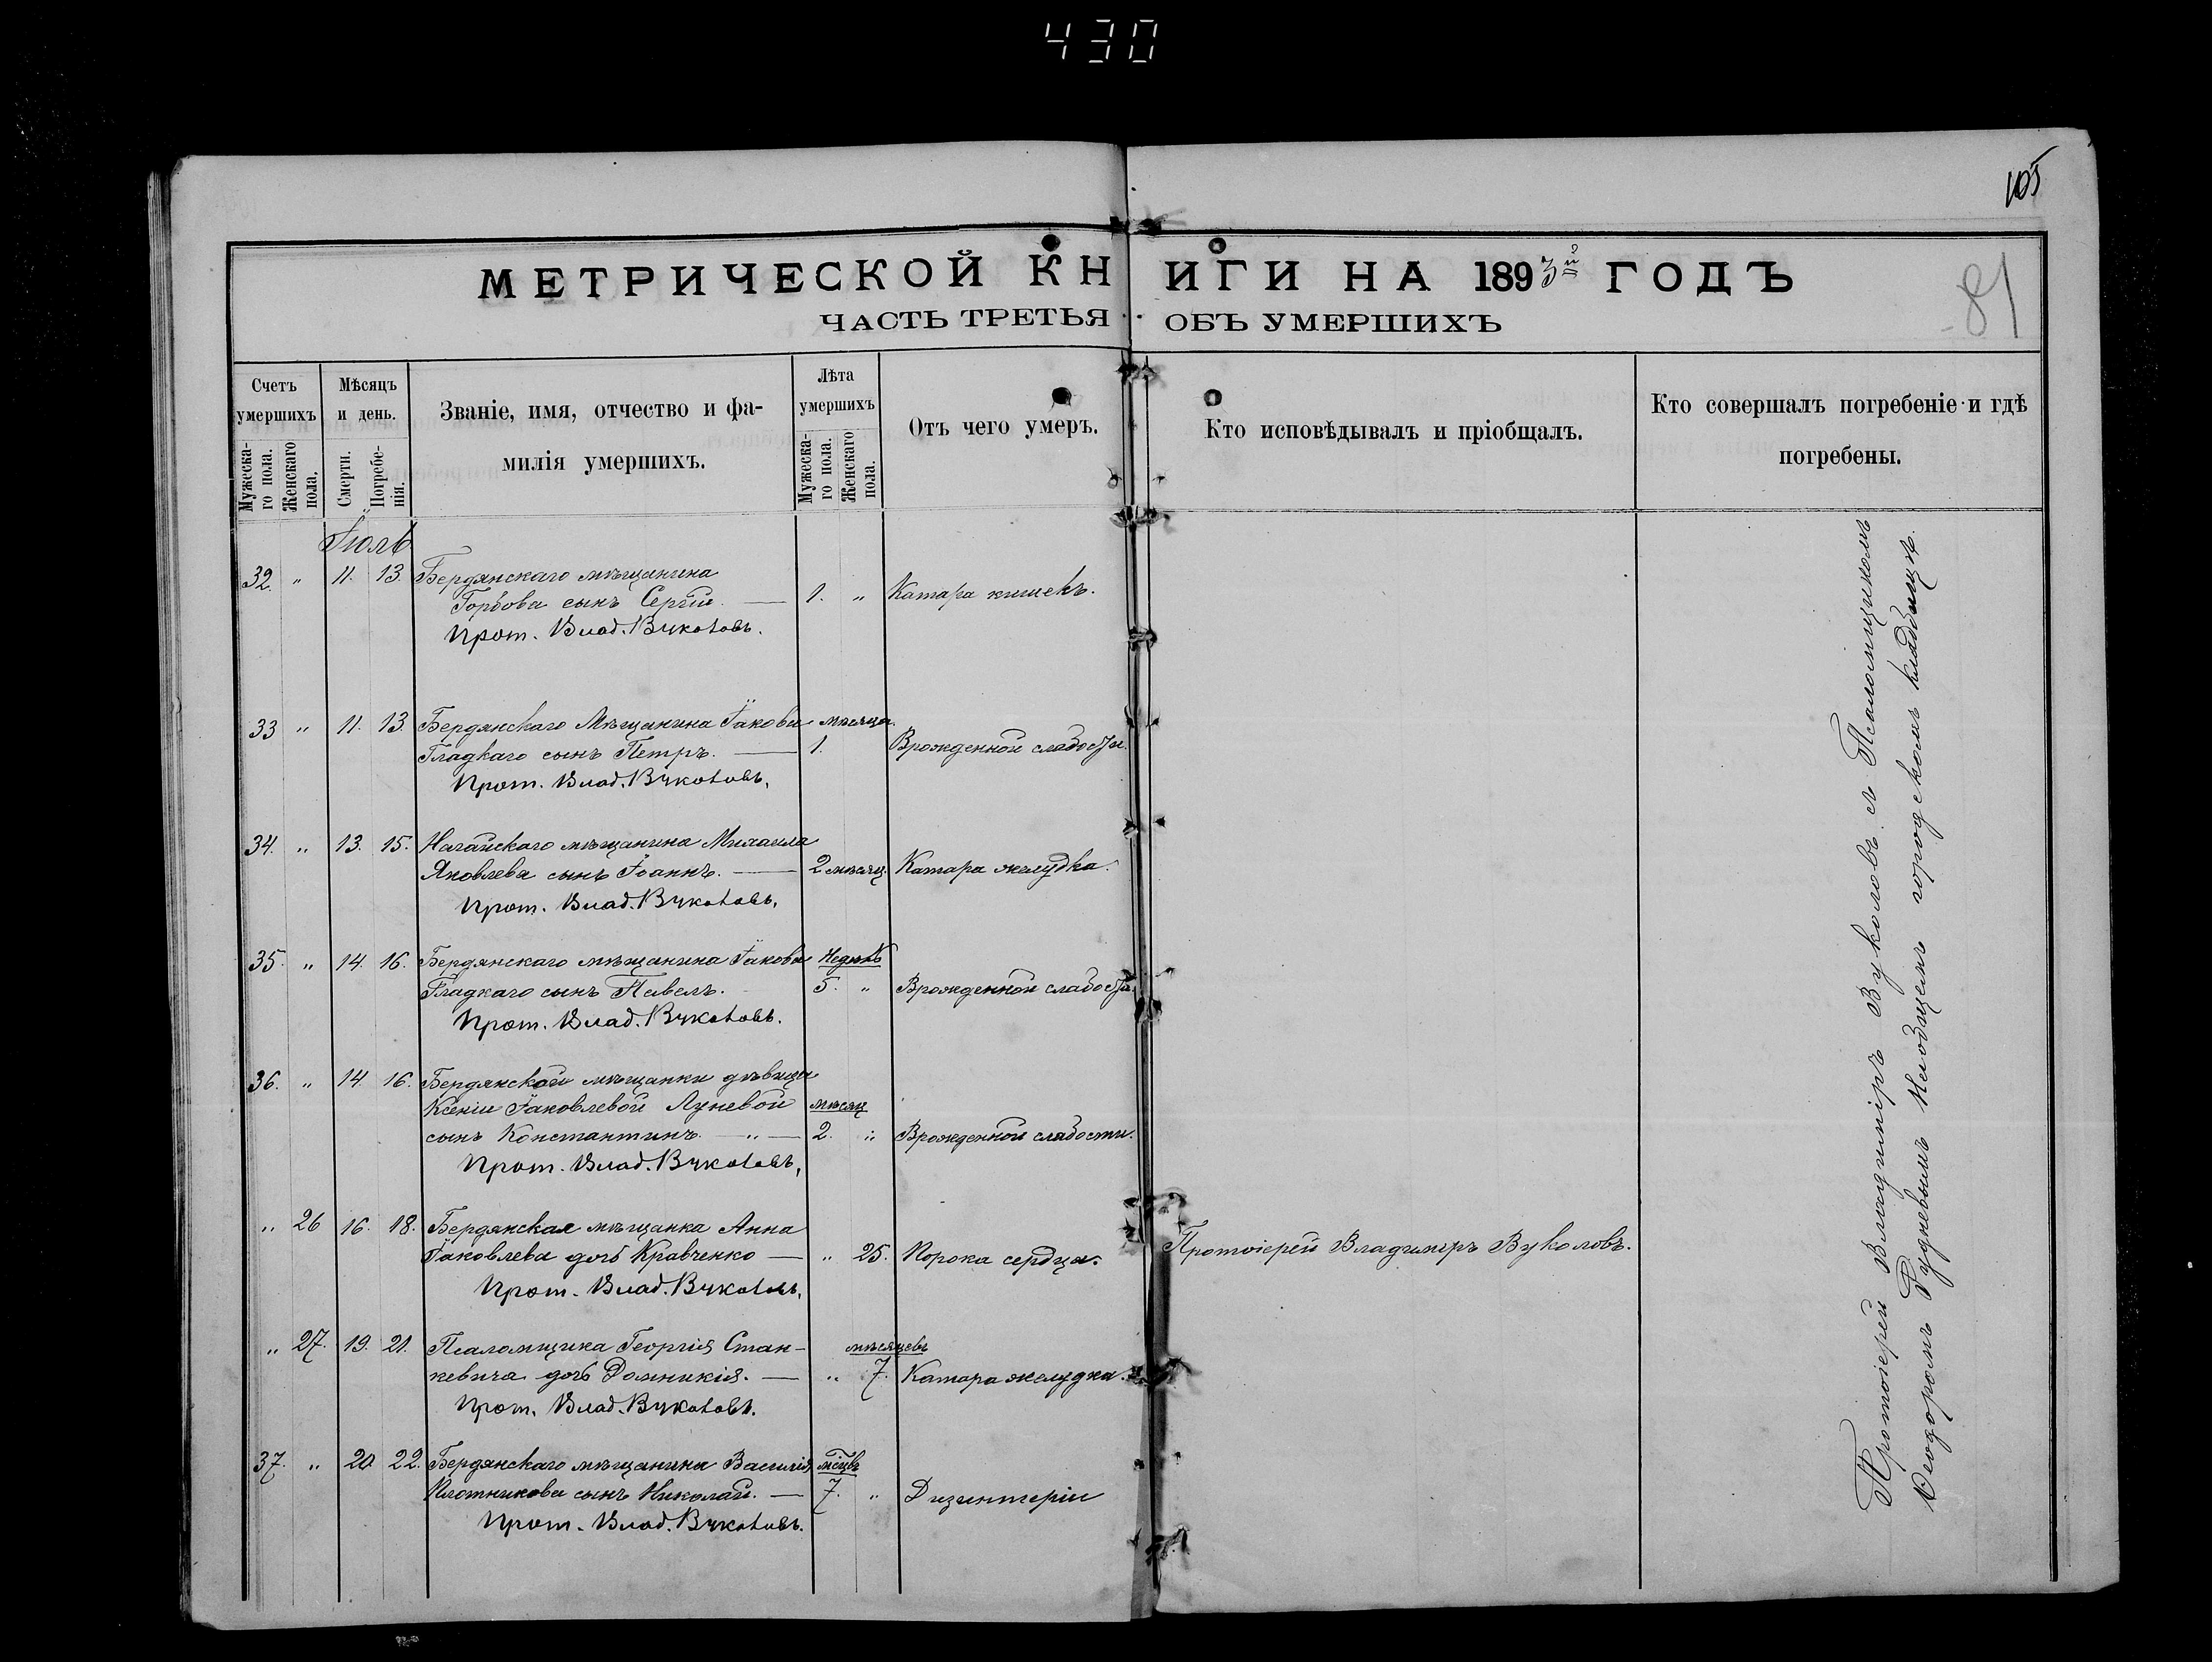 430
105
81
МЕТРИЧЕСКОЙ КНИГИ НА 1893й ГОДЪ
ЧАСТЬ ТРЕТЬЯ ОБЪ УМЕРШИХЪ
Счетъ умершихъ
Мужеска-го пола.
Женскаго пола.
Мѣсяцъ и день.
Смерти.
Погребе-нія.
Званіе, имя, отчество и фа-
милія умершихъ.
Лѣта умершихъ
Мужеска-го пола.
Женскаго пола.
Отъ чего умеръ.
Кто исповѣдывалъ и пріобщалъ.
Кто совершалъ погребеніе и гдѣ
погребены.
Іюль
32. " 11. 13. Бердянскаго мѣщанина
Горбова сынъ Сергій. — 1. " Катара кишекъ.
Прот. Влад. Вуколовъ.
33 " 11. 13. Бердянскаго Мѣщанина Іакова мѣсяца.
Гладкаго сынъ Петръ. — 1. Врожденной слабости.
Прот. Влад. Вуколовъ.
34. " 13. 15. Нагайскаго мѣщанина Михаила
Яковлева сынъ Іоаннъ. — 2 мѣсяц. Катара желудка.
Прот. Влад. Вуколовъ.
35. " 14. 16. Бердянскаго мѣщанина Іакова Недѣль
Гладкаго сынъ Павелъ. 5. " Врожденной слабости.
Прот. Влад. Вуколовъ.
36. " 14. 16. Бердянской мѣщанки дѣвицы
Ксеніи Іаковлевой Луневой мѣсяц
сынъ Константинъ. — " — 2. " Врожденной слабости.
Прот. Влад. Вуколовъ.
" 26 16. 18. Бердянская мѣщанка Анна
Іаковлева дочь Кравченко — " 25. Порока сердца. Протоіерей Владиміръ Вуколовъ.
Прот. Влад. Вуколовъ.
" 27. 19. 21. Псаломщика Георгія Стан- мѣсяцевъ
кевича дочь Домникія. — " 7. Катара желудка.
Прот. Влад. Вуколовъ.
37. " 20 22. Бердянскаго мѣщанина Василія мѣсцвъ
Плотникова сынъ Николай. — 7. " Дизинтеріи
Прот. Влад. Вуколовъ.
Протоіерей Владиміръ Вуколовъ съ Псаломщикомъ
Ѳеодоромъ Рудневымъ на общемъ городскомъ кладбищѣ.